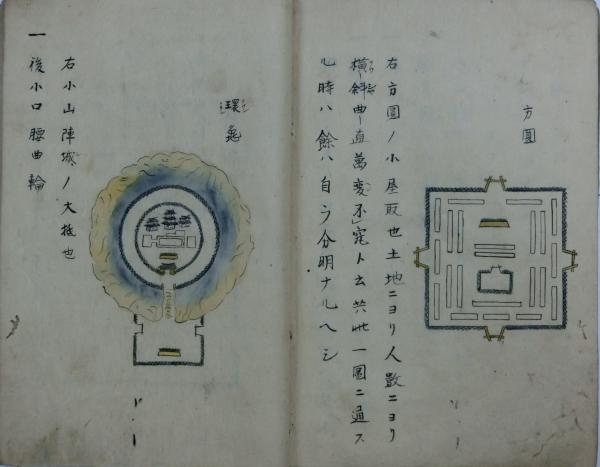 方圓
右方圓ノ小屋取也土地ニヨリ人数ニヨリ
横斜曲直萬変不定ト云共此一圖ニ通ス
ル時ハ餘ハ自ラ分明ナルヘシ
環亀
右小山陣城ノ大抵也
一 後小口腰曲輪